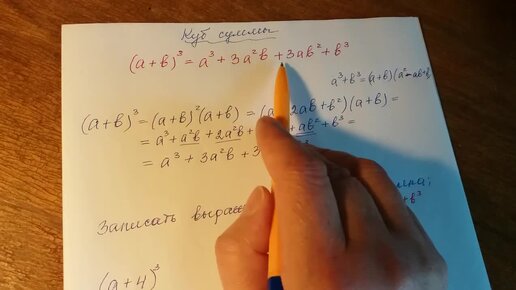 Куб суммы
(a+b)³ = a³ + 3a²b + 3ab² + b³
a³+b³=(a+b)(a²-ab+b
(a+b)³ = (a+b)²(a+b) = (a 2ab+b²)(a+b) =
= a³ + a²b + 2a²b + + ab² + b³ =
= a³ + 3a²b + 3
Записать
+b³
(a+4)³